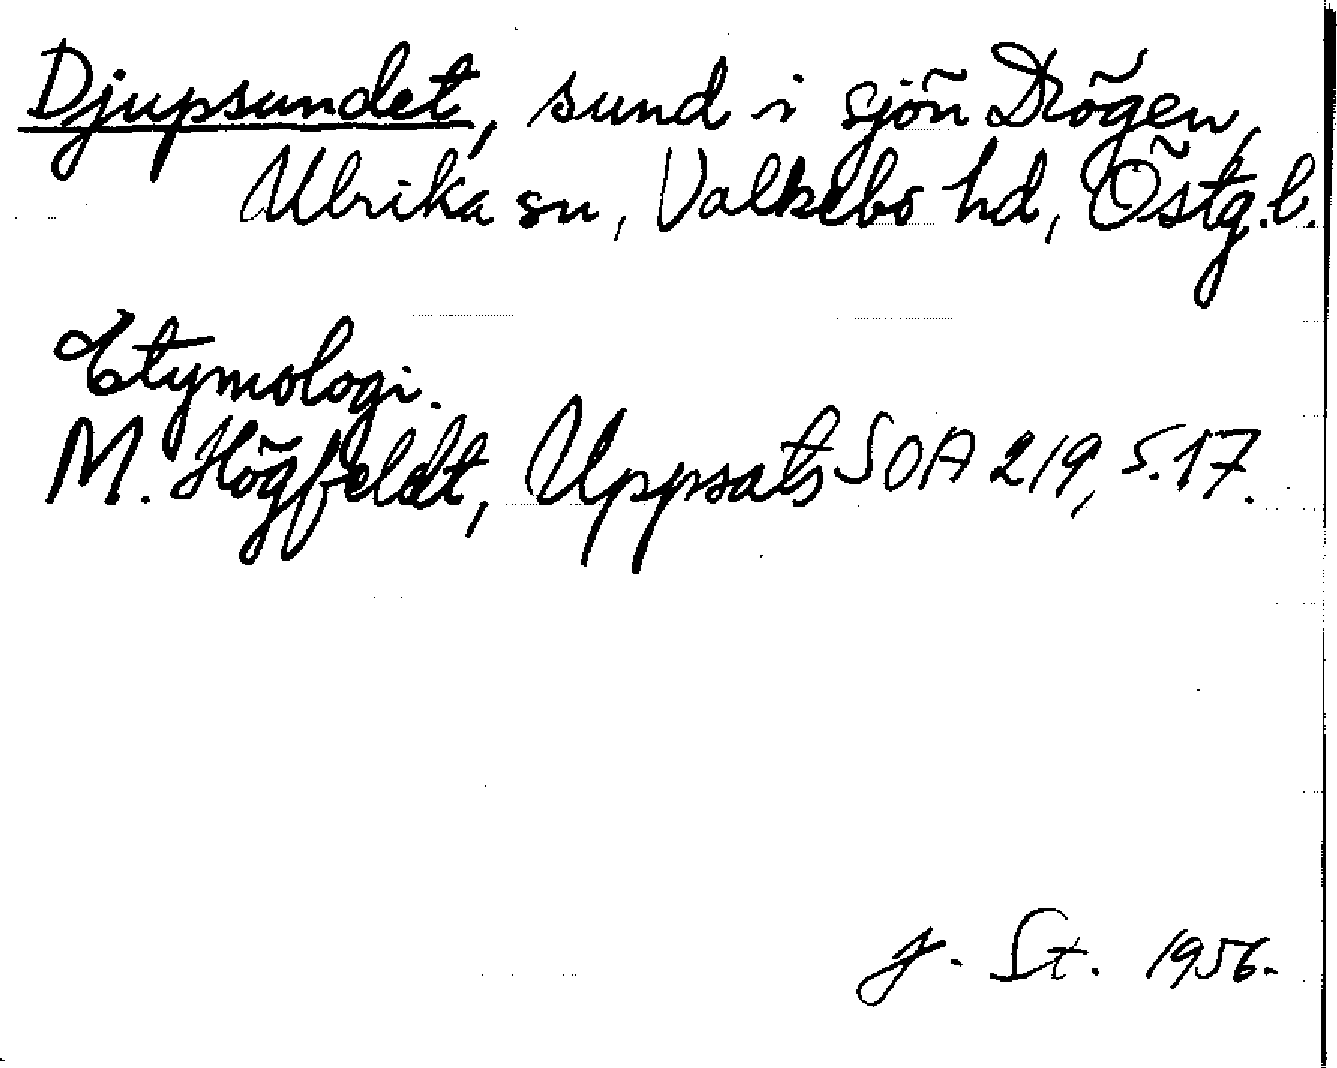 Djupsundet, sund i sjön Drögen,
Ulrika sn, Valkebo hd, Östg.l.
Etymologi.
M. Högfeldt, Uppsats SOA 219, s. 17.
J. St. 1956.